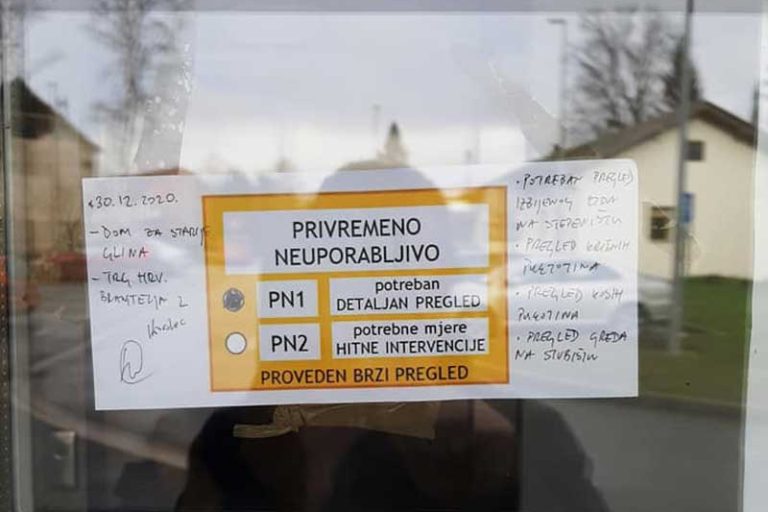 30.12.2020.
- DOM ZA STARIJE
GLINA
- TRG. HRV.
BRANITELJA 2
PRIVREMENO
NEUPORABLJIVO
PN1
potreban
DETALJAN PREGLED
PN2
potrebne mjere
HITNE INTERVENCIJE
PROVEDEN BRZI PREGLED
• POTREBAN PREGLED
IZBIJENOG ZIDA
NA STEPENIŠTU
• PREGLED
PUKOTINA
• PREGLED KOSIH
PUKOTINA
• PREGLED GREDA
NA STUBIŠTU